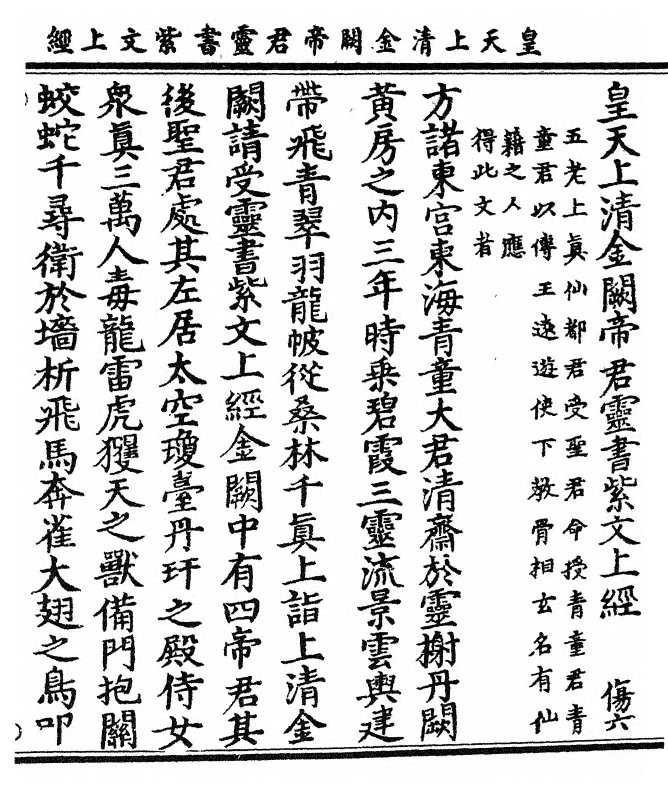 皇天上清金闕帝君靈書紫文上經
皇天上清金闕帝君靈書紫文上經　傷六
五老上真仙都君受聖君命授青童君青
童君以傳王遠遊使下教骨相玄名有仙
籍之人應
得此文者
方諸東宮東海青童大君清齋於靈榭丹闕
黃房之內三年時乘碧霞三靈流景雲輿建
帶飛青翠羽龍帔從桑林千真上詣上清金
闕請受靈書紫文上經金闕中有四帝君其
後聖君處其左居太空瓊臺丹玕之殿侍女
衆真三萬人毒龍雷虎玃天之獸備門抱關
蛟蛇千尋衛於墻析飛馬奔雀大翅之鳥叩